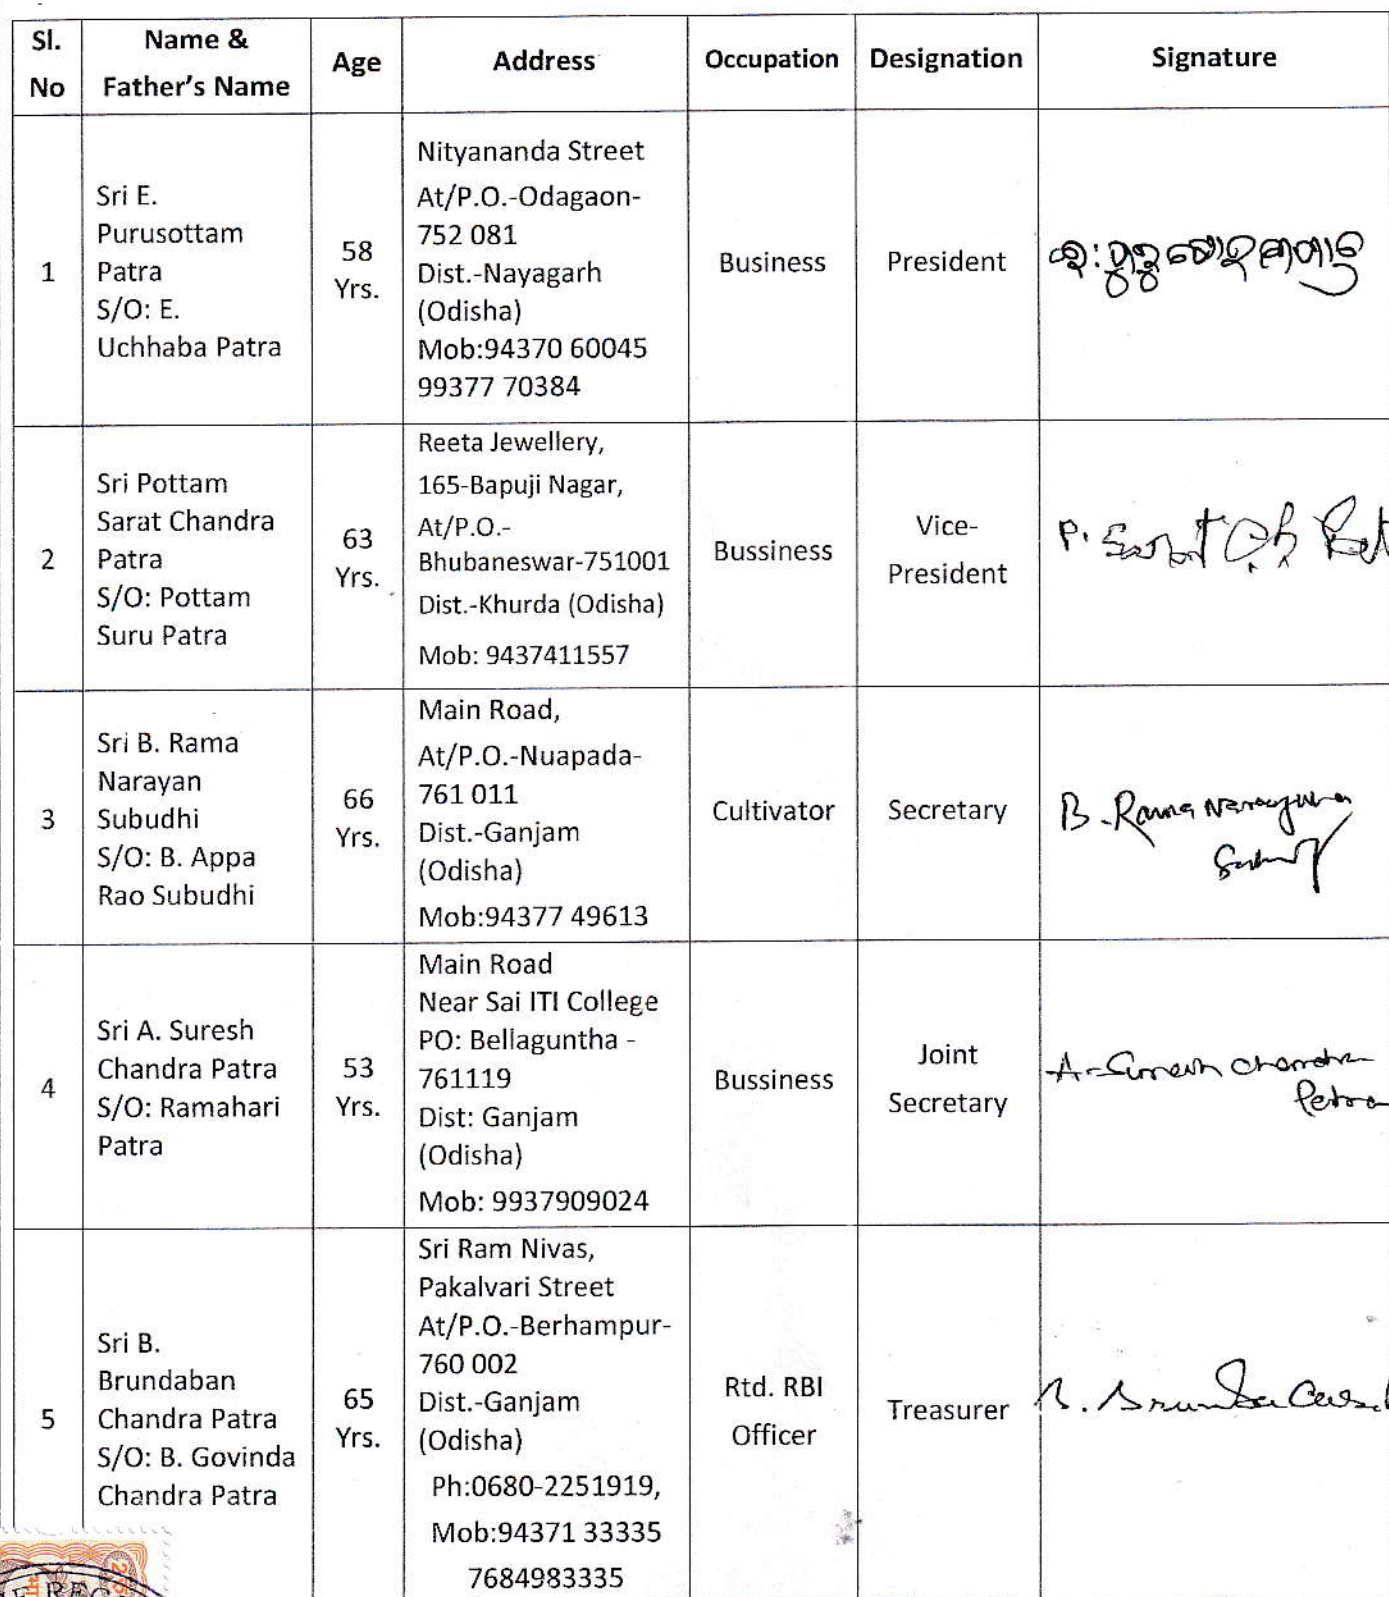 Sl. No
Name & Father's Name
Age
Address
Occupation
Designation
Signature
1
Sri E.
Purusottam
Patra
S/O: E.
Uchhaba Patra
58
Yrs.
Nityananda Street
At/P.O.-Odagaon-
752 081
Dist.-Nayagarh
(Odisha)
Mob:94370 60045
99377 70384
Business
President
2
Sri Pottam
Sarat Chandra
Patra
S/O: Pottam
Suru Patra
63
Yrs.
Reeta Jewellery,
165-Bapuji Nagar,
At/P.O.-
Bhubaneswar-751001
Dist.-Khurda (Odisha)
Mob: 9437411557
Bussiness
Vice-
President
P. Sarat Ch.
3
Sri B. Rama
Narayan
Subudhi
S/O: B. Appa
Rao Subudhi
66
Yrs.
Main Road,
At/P.O.-Nuapada-
761 011
Dist.-Ganjam
(Odisha)
Mob:94377 49613
Cultivator
Secretary
B. Rama Narayana
4
Sri A. Suresh
Chandra Patra
S/O: Ramahari
Patra
53
Yrs.
Main Road
Near Sai ITI College
PO: Bellaguntha -
761119
Dist: Ganjam
(Odisha)
Mob: 9937909024
Bussiness
Joint
Secretary
A. Suresh Chandra
Patra
5
Sri B.
Brundaban
Chandra Patra
S/O: B. Govinda
Chandra Patra
65
Yrs.
Sri Ram Nivas,
Pakalvari Street
At/P.O.-Berhampur-
760 002
Dist.-Ganjam
(Odisha)
Ph:0680-2251919,
Mob:94371 33335
7684983335
Rtd. RBI
Officer
Treasurer